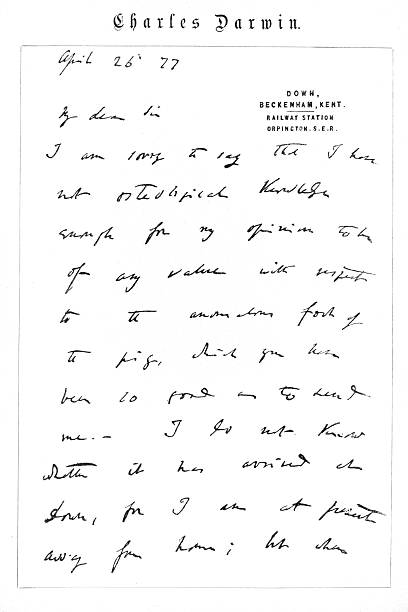 Charles Darwin.
April 26th 77
DOWN,
BECKENHAM, KENT.
RAILWAY STATION
ORPINGTON. S.E.R.
My dear Sir
I am sorry to say that I have
not osteological knowledge
enough for my opinion to be
of any value with respect
to the anomalous foot of
the pig, which you have
been so good as to send
me. — I do not know
whether it has arrived at
Down, for I am at present
away from home; but when